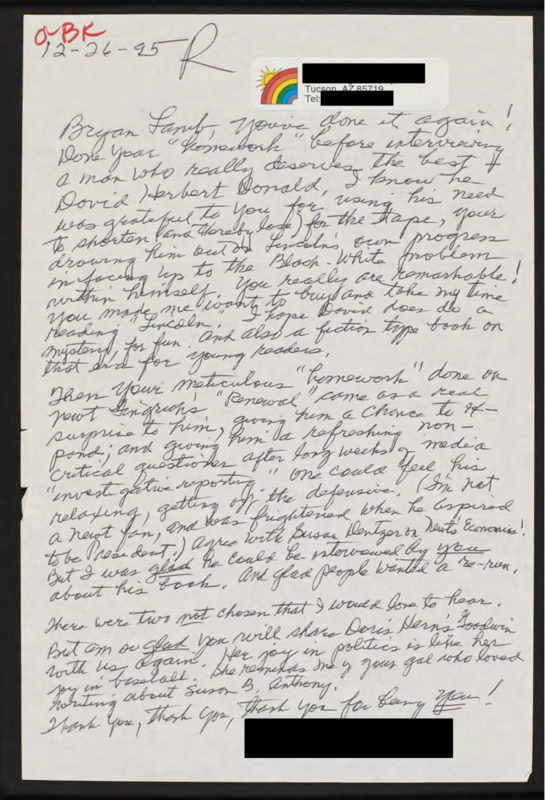 O-BK
12-26-95 R
Tucson, AZ 85719
Tel:
Bryan Lamb, you've done it again!
Done your "homework" before interviewing
a man who really deserves the best -
David Herbert Donald. I know he
was grateful to you for using his need
to shorten (and thereby lose) for the tape, your
drawing him out on Lincoln's own progress
in facing up to the Black-White problem
within himself. You really are remarkable!
You made me want to buy and take my time
reading "Lincoln." I hope David does do a
mystery, for fun. And also a fiction type book on
that era for young readers.
Then your meticulous "homework" done on
Newt Gingrich's "Renewal" came as a real
surprise to him, giving him a chance to ex-
pond; and giving him a refreshing non-
critical questioner after long weeks of media
"investigative reporting." One could feel his
relaxing, getting off the defensive. (I'm not
a Newt fan, and was frightened when he aspired
to be President.) Agree with Susan Dentzer on Newt's Economics!
But I was glad he could be interviewed by you
about his book. And glad people wanted a re-run.
There were two not chosen that I would love to hear.
But am so glad you will share Doris Kerns Goodwin
with us again. Her joy in politics is like her
joy in baseball. She reminds me of your gal who loved
writing about Susan B. Anthony.
Thank you, thank you, thank you for being you!